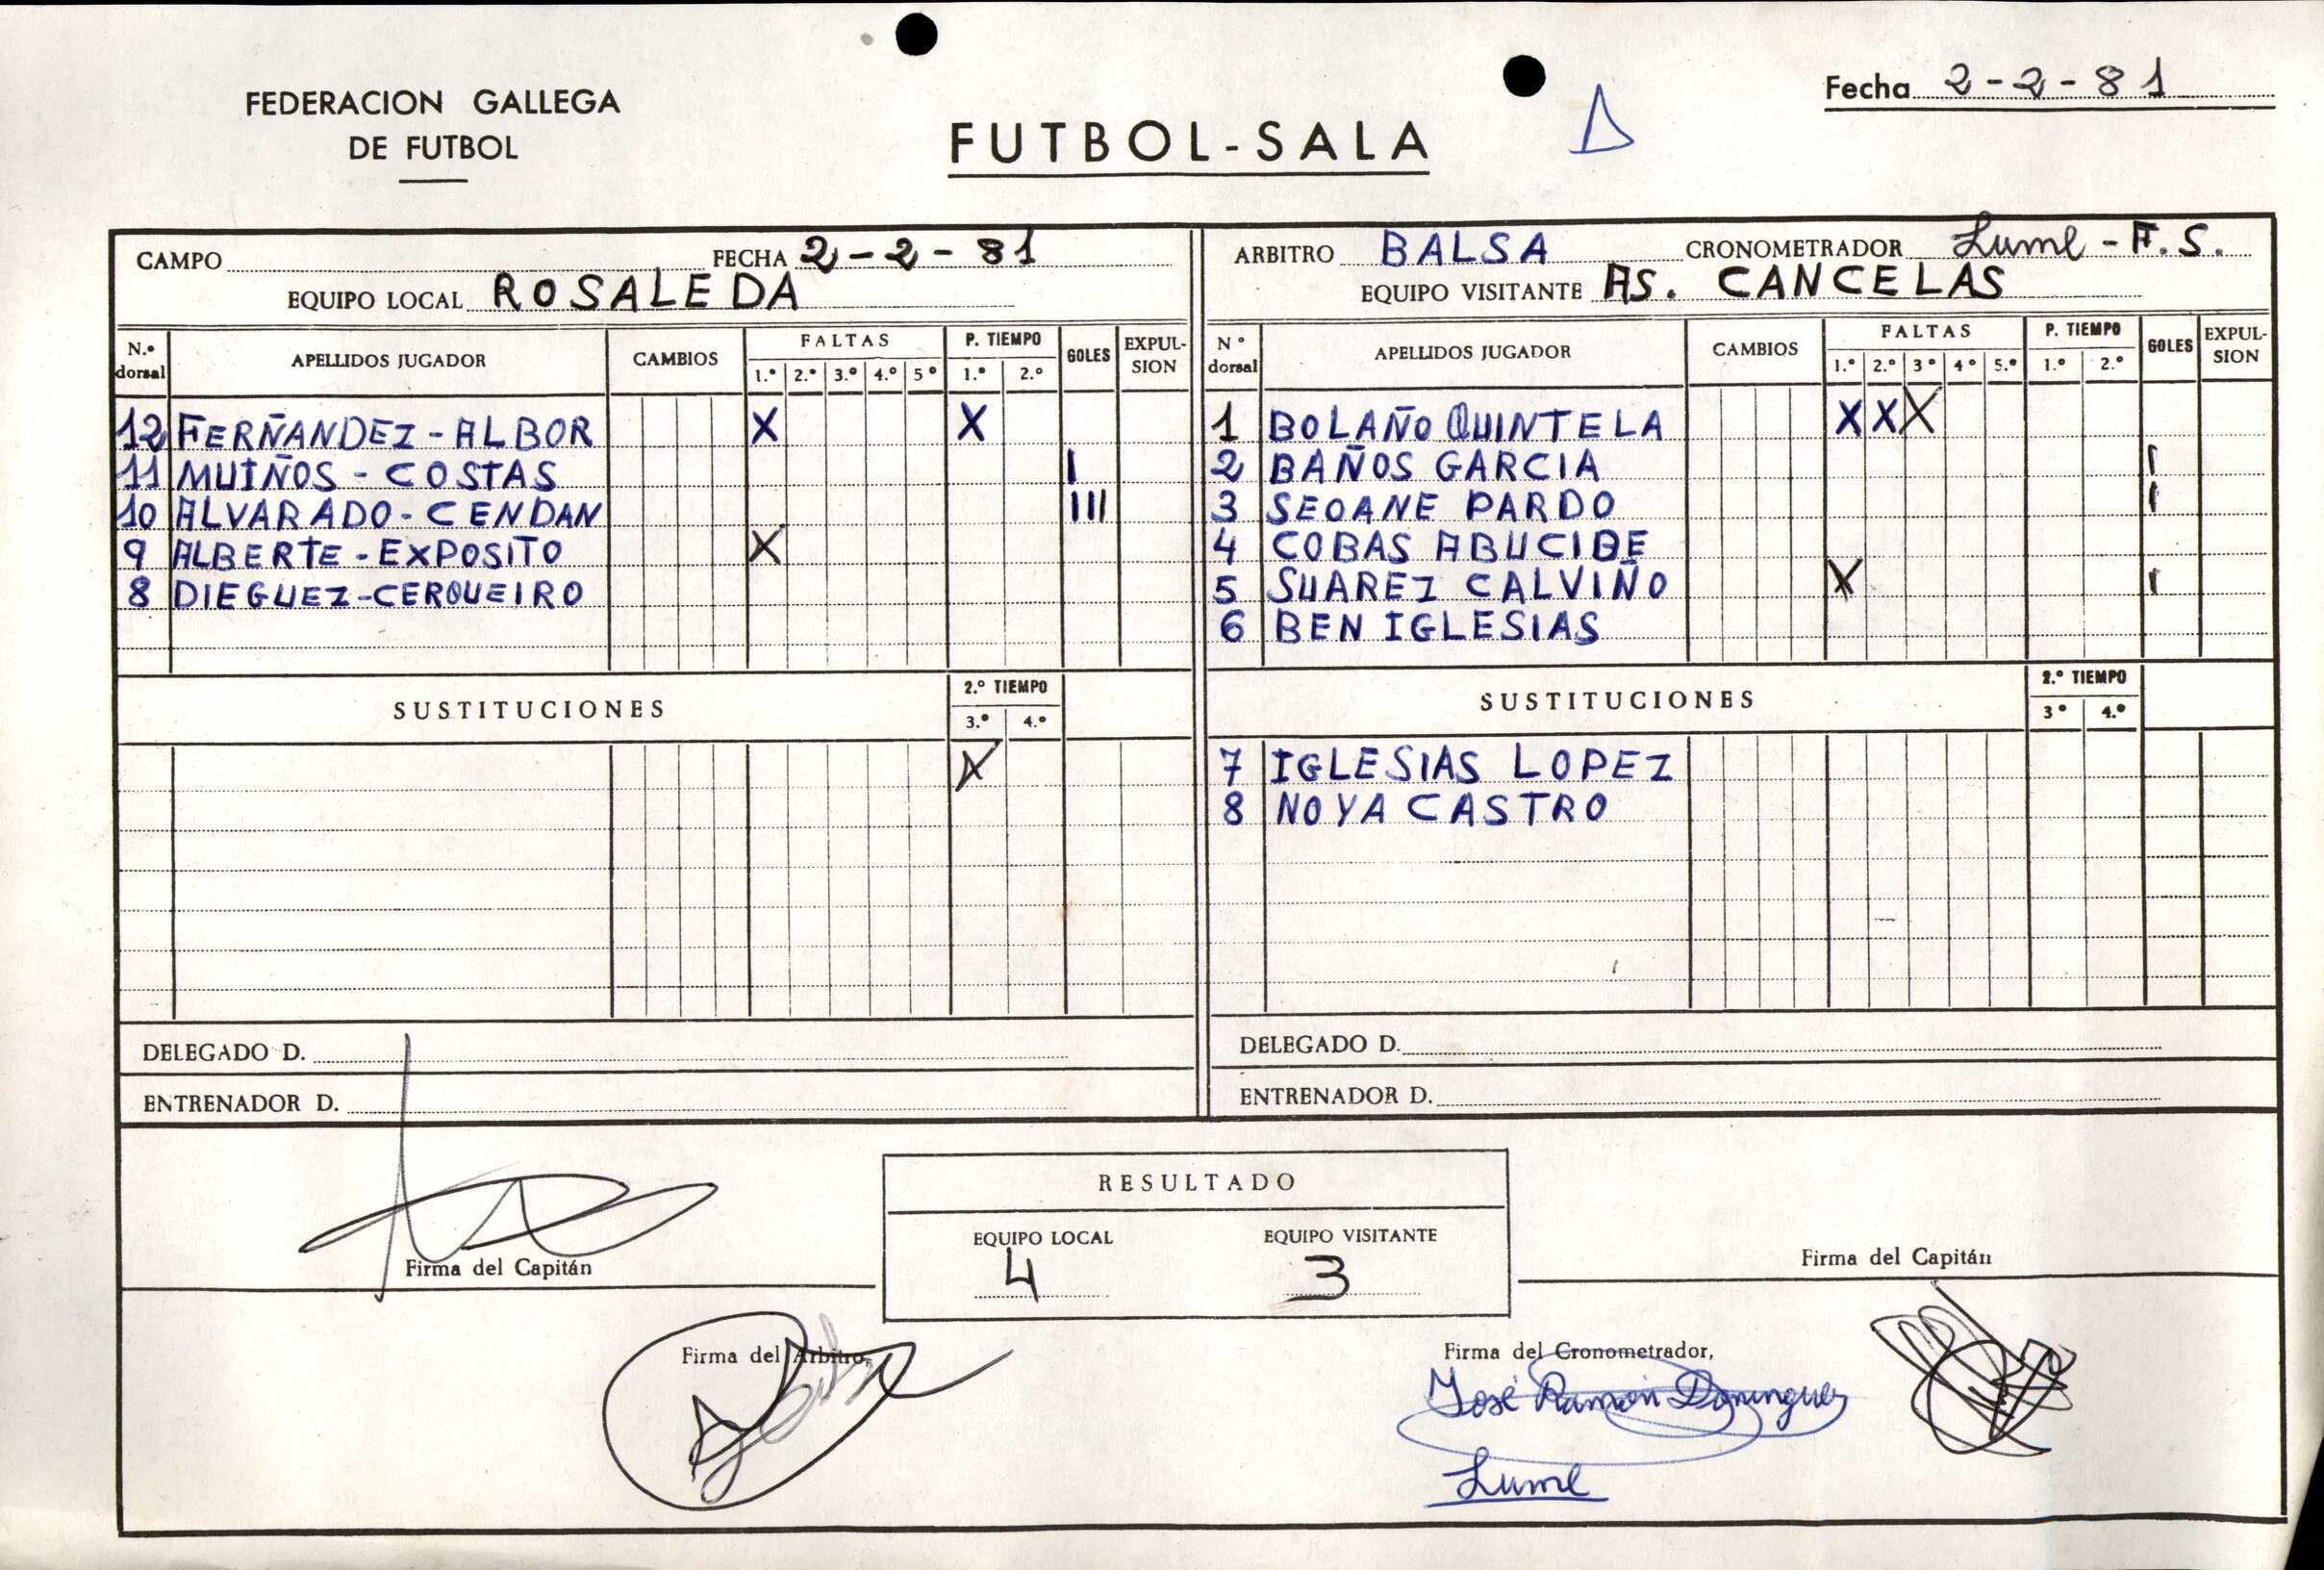 FEDERACION GALLEGA
DE FUTBOL
FUTBOL-SALA
Fecha 2-2-81
CAMPO FECHA 2-2-81
EQUIPO LOCAL ROSALEDA
N.º dorsal APELLIDOS JUGADOR CAMBIOS FALTAS 1.º 2.º 3.º 4.º 5º P. TIEMPO 1.º 2.º GOLES EXPUL-SION
12 FERÑANDEZ-ALBOR X X
11 MUIÑOS-COSTAS I
10 ALVARADO-CENDAN III
9 ALBERTE-EXPOSITO X
8 DIEGUEZ-CERQUEIRO
SUSTITUCIONES 2.º TIEMPO 3.º 4.º
X
DELEGADO D.
ENTRENADOR D.
ARBITRO BALSA CRONOMETRADOR Lume-F.S.
EQUIPO VISITANTE AS. CANCELAS
Nº dorsal APELLIDOS JUGADOR CAMBIOS FALTAS 1.º 2.º 3º 4º 5.º P. TIEMPO 1.º 2.º GOLES EXPUL-SION
1 BOLAÑO QUINTELA X X X
2 BAÑOS GARCIA I
3 SEOANE PARDO I
4 COBAS ABUCIDE
5 SUAREZ CALVIÑO X I
6 BEN IGLESIAS
SUSTITUCIONES 2.º TIEMPO 3º 4.º
7 IGLESIAS LOPEZ
8 NOYA CASTRO
DELEGADO D.
ENTRENADOR D.
RESULTADO
EQUIPO LOCAL EQUIPO VISITANTE
4 3
Firma del Capitán
Firma del Capitán
Firma del Arbitro,
Firma del Cronometrador,
José Ramón Dominguez
Lume